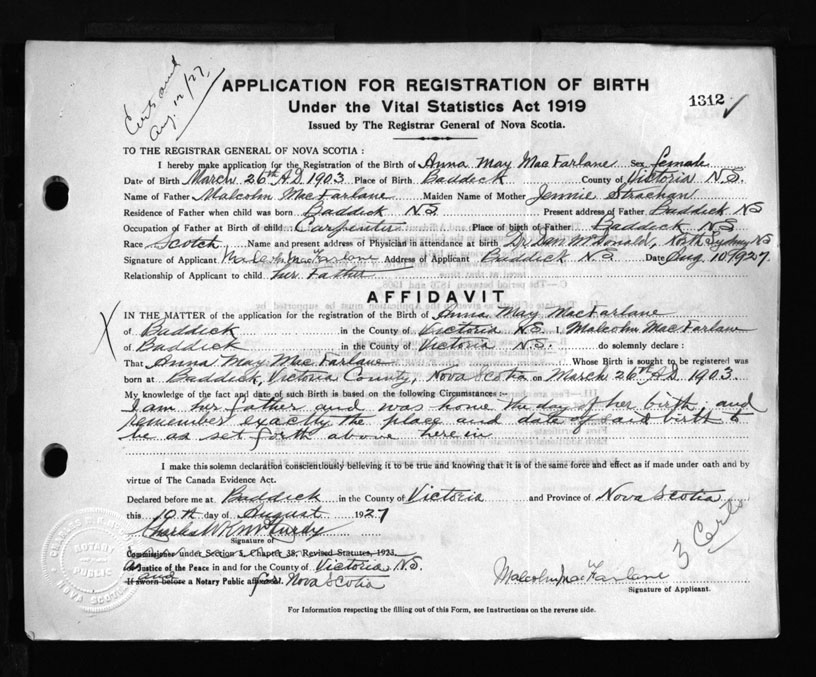 Certs and
Aug. 12/27,
APPLICATION FOR REGISTRATION OF BIRTH
Under the Vital Statistics Act 1919
1312 ✓
Issued by The Registrar General of Nova Scotia.
TO THE REGISTRAR GENERAL OF NOVA SCOTIA :
I hereby make application for the Registration of the Birth of Anna May MacFarlane Sex female
Date of Birth March 26th A.D. 1903 Place of Birth Baddeck County of Victoria N.S.
Name of Father Malcolm MacFarlane Maiden Name of Mother Jennie Strachan
Residence of Father when child was born Baddeck N.S. Present address of Father Baddeck NS
Occupation of Father at Birth of child Carpenter Place of birth of Father Baddeck N.S
Race Scotch Name and present address of Physician in attendance at birth Dr. Dan McDonald, North Sydney NS
Signature of Applicant Malcolm MacFarlane Address of Applicant Baddeck N.S. Date Aug 10 1927.
Relationship of Applicant to child her Father
AFFIDAVIT
IN THE MATTER of the application for the registration of the Birth of Anna May MacFarlane
of Baddeck in the County of Victoria N.S. I, Malcolm MacFarlane
of Baddeck in the County of Victoria N.S. do solemnly declare :
That Anna May MacFarlane Whose Birth is sought to be registered was
born at Baddeck, Victoria County, Nova Scotia on March 26th A.D. 1903.
My knowledge of the fact and date of such Birth is based on the following Circumstances :-
I am her father and was home the day of her birth, and
remember exactly the place and date of said birth to
be as set forth above herein
I make this solemn declaration conscientiously believing it to be true and knowing that it is of the same force and effect as if made under oath and by
virtue of The Canada Evidence Act.
Declared before me at Baddeck in the County of Victoria and Province of Nova Scotia
this 10th day of August 1927
Charles W K McCurdy
Signature of
Commissioner under Section 3, Chapter 38, Revised Statutes, 1923.
Justice of the Peace in and for the County of Victoria N.S.
and
If sworn before a Notary Public affix seal. for Nova Scotia
NOTARY
PUBLIC
NOVA SCOTIA
3 Certs
Malcolm MacFarlane
Signature of Applicant.
For Information respecting the filling out of this Form, see Instructions on the reverse side.